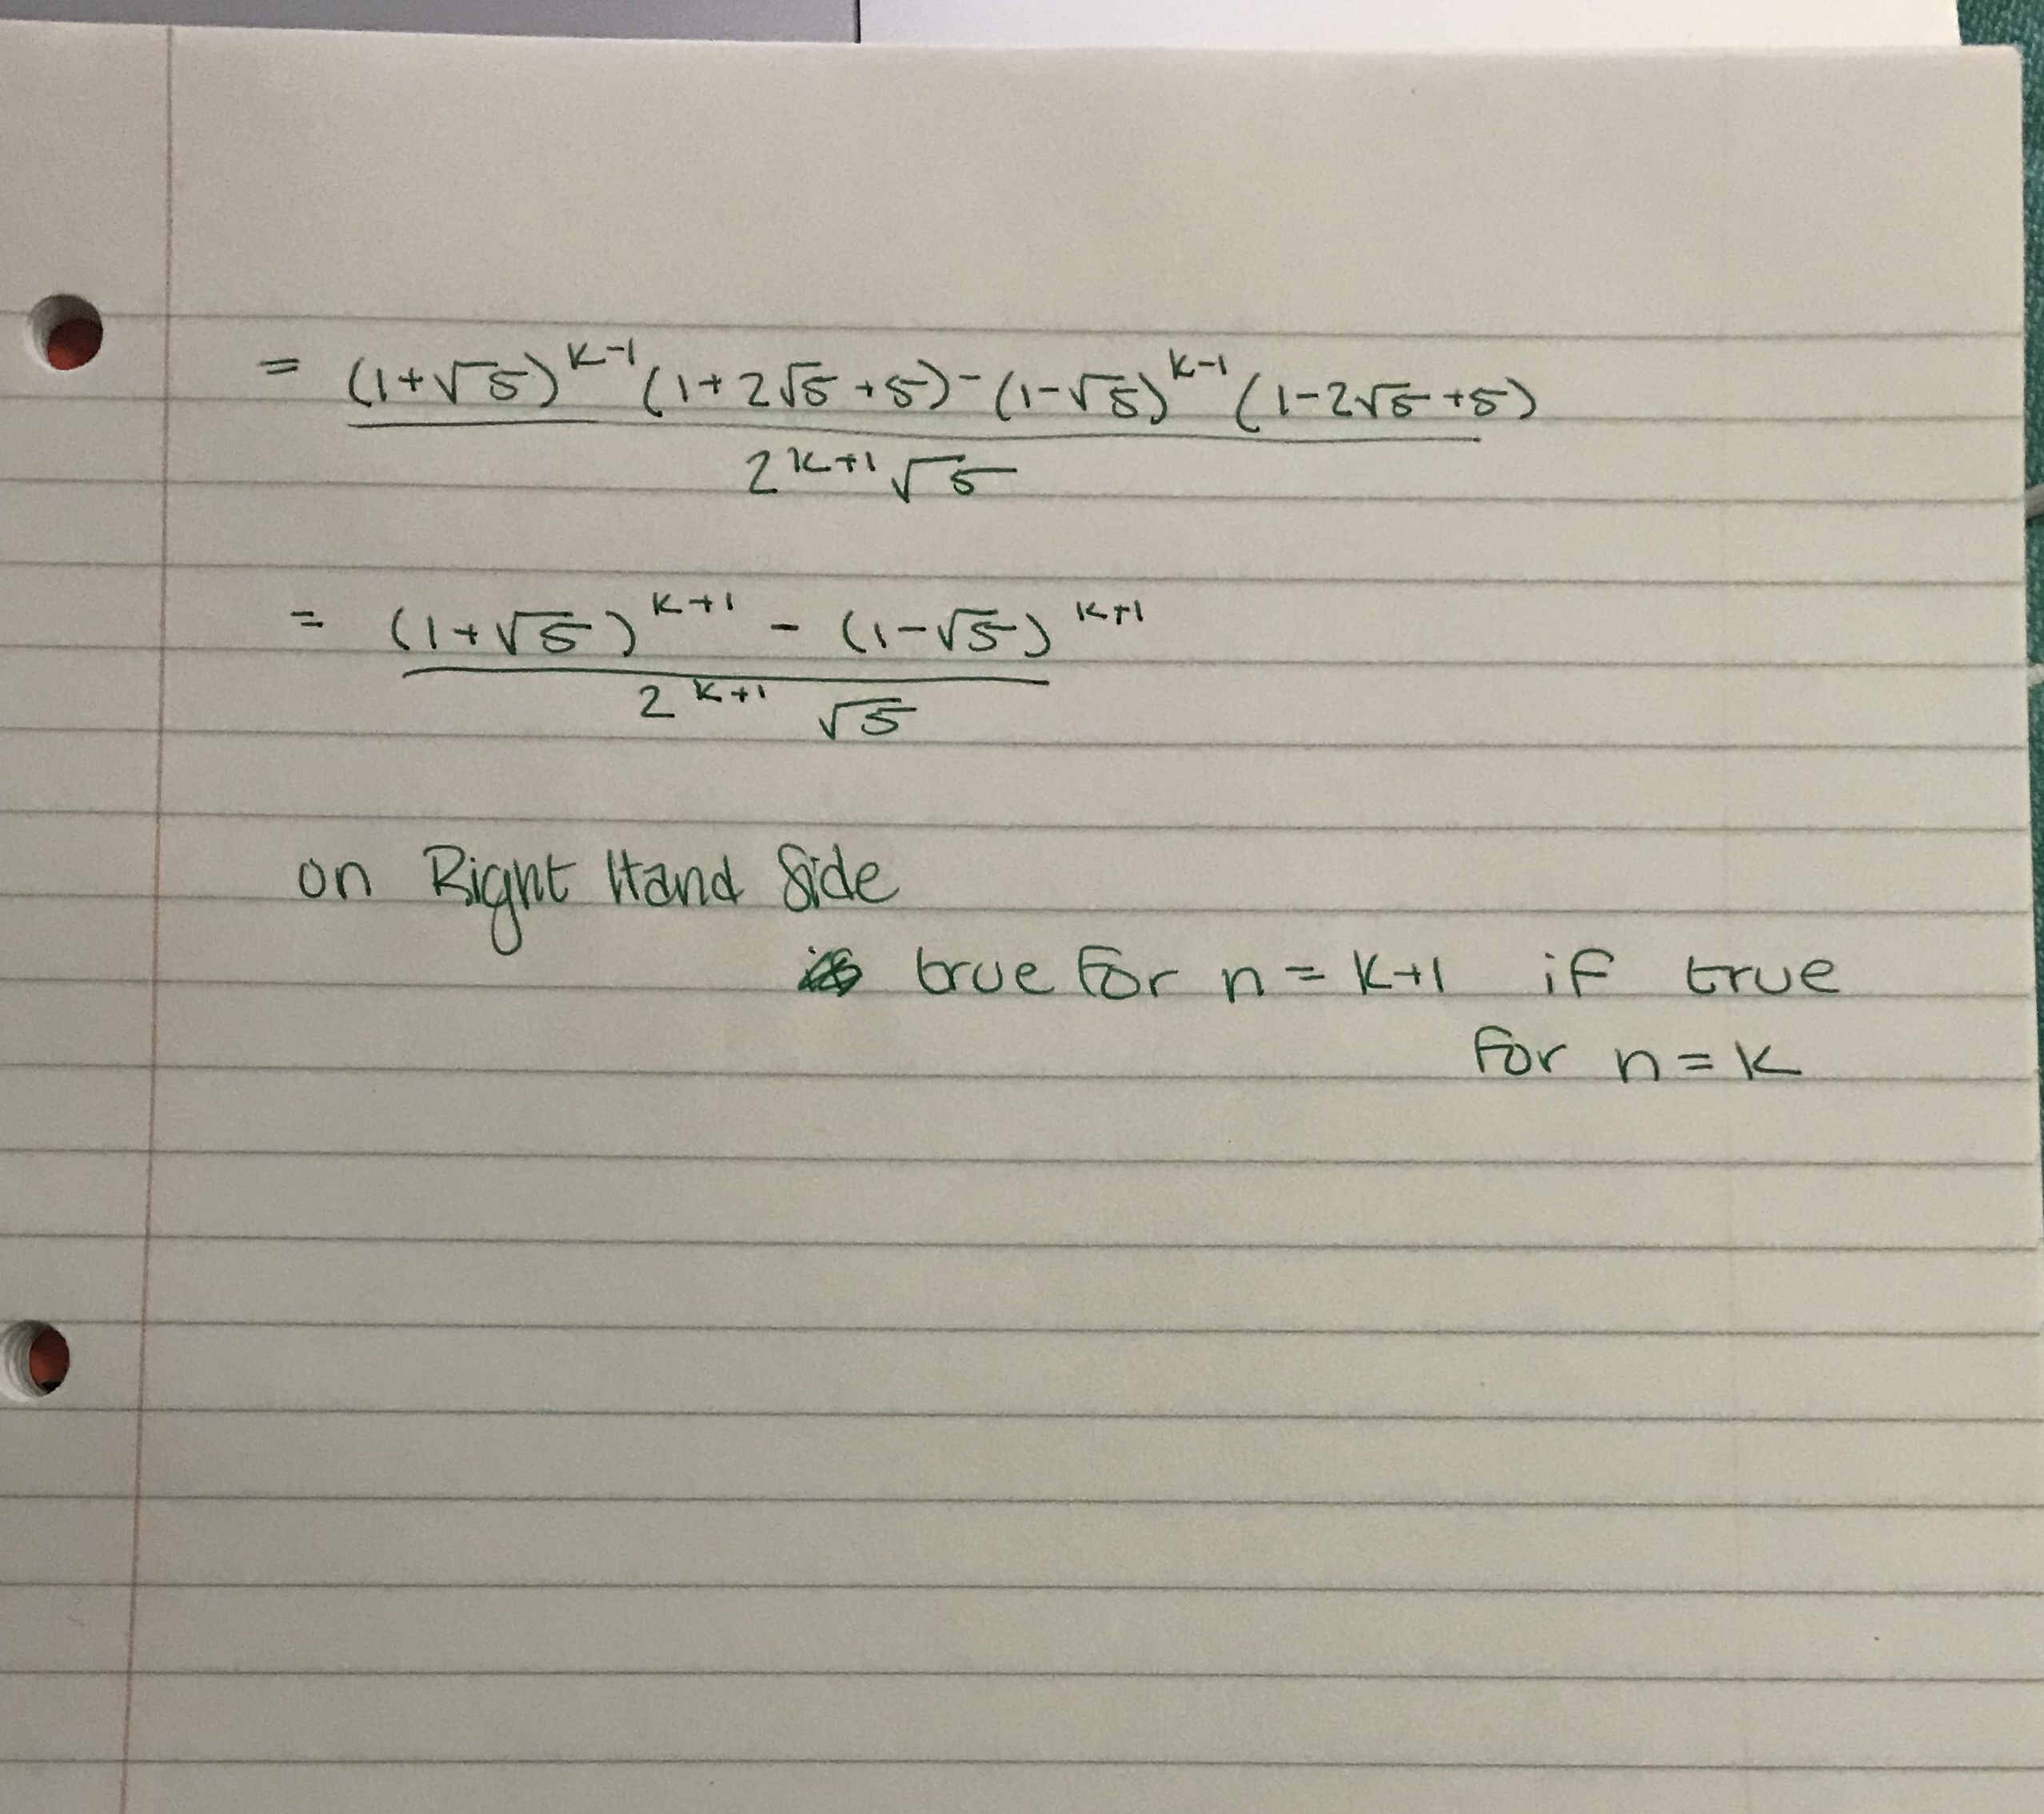 = (1+√5)^(k-1) (1+2√5+5) - (1-√5)^(k-1) (1-2√5+5)
2^(k+1) √5
= (1+√5)^(k+1) - (1-√5)^(k+1)
2^(k+1) √5
on Right Hand Side
true for n = k+1 if true
for n = k